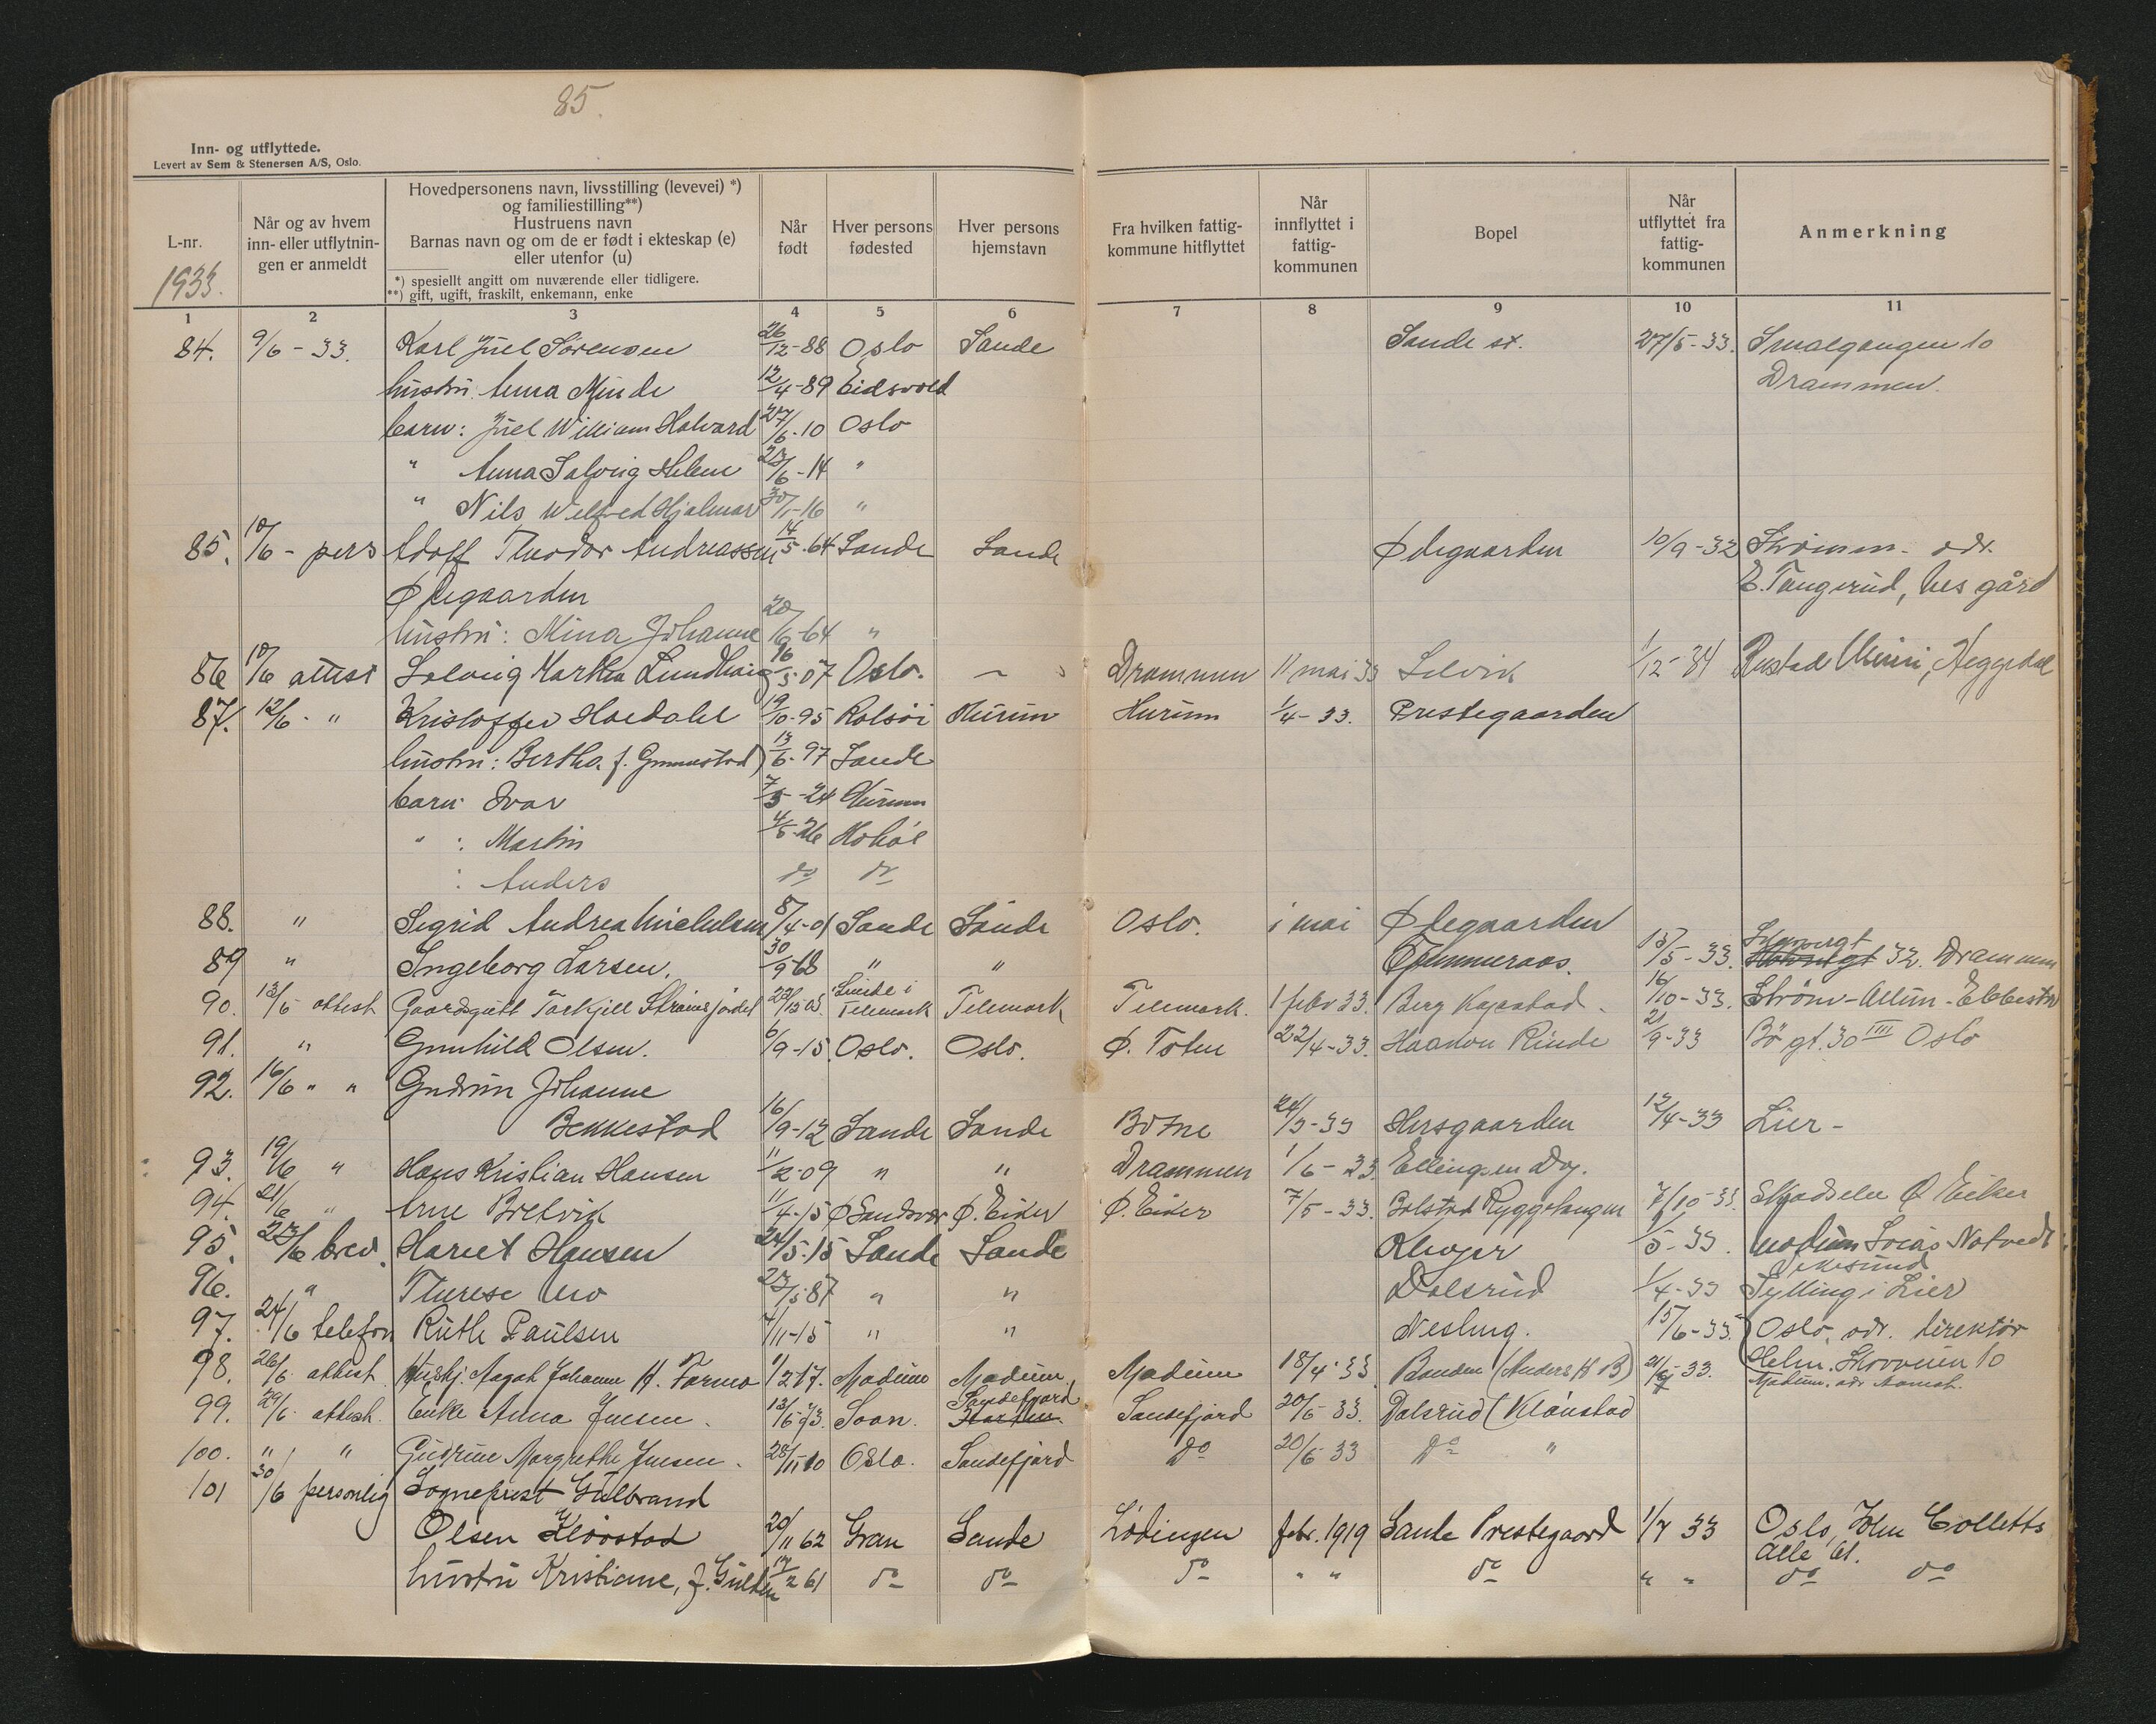 85.
Inn- og utflyttede.
Levert av Sem & Stenersen A/S, Oslo.
L-nr. 1933. Når og av hvem inn- eller utflytnin-gen er anmeldt Hovedpersonens navn, livsstilling (levevei) *) og familiestilling**) Hustruens navn Barnas navn og om de er født i ekteskap (e) eller utenfor (u) *) spesiellt angitt om nuværende eller tidligere. **) gift, ugift, fraskilt, enkemann, enke Når født Hver persons fødested Hver persons hjemstavn Fra hvilken fattig-kommune hitflyttet Når innflyttet i fattig-kommunen Bopel Når utflyttet fra fattig-kommunen Anmerkning
1 2 3 4 5 6 7 8 9 10 11
84. 9/6 - 33. Karl Juel Sørensen 26/12-88 Oslo Sande Sande st. 27/5-33. Smalgangen 10
hustru: Anna Minde 12/4-89 Eidsvold Drammen.
barn: Juel William Halvard 27/6-10 Oslo
" Anna Solveig Helene 23/6-14 "
" Nils Hjalmar 30/1-16 "
85. 10/6 - pers Adolf Theodor Andreassen 14/5-64 Sande Sande Ødegaarden 10/9-32 Strømm. adr.
Ødegaarden E. Tangerud, hes gård
hustru: Mina Johanne 20/6-64 "
86 10/6 attest Solveig Martha 16/5-07 Oslo. Drammen 11 mai 33 Selvik 1/12-34 Rustad Heggedal
87. 12/6 - " Kristoffer Hoedahl 19/10-95 Rolsøi Hurum Hurum 1/4-33. Prestegaarden
hustru: Bertha f. 13/6-97 Sande
barn: Ivar 7/5-24 Hurum
" : Martin 4/5-26 Hobøl
: Anders do do
88. " Sigrid Andrea 8/4-01 Sande Sande Oslo. i mai Ødegaarden
89 " Ingeborg Larsen. 30/9 68 " " 15/5-33. 32. Drammen
90. 13/6 attest Gaardsgutt Torkjell Telemark Telemark Telemark. 1 febr 33. Berg 16/10-33. Strøm-
91. " Gunhild Olsen. 6/9-15. Oslo. Oslo. Ø. Toten 22/4-33. Haakon Rinde 21/9-33 Bö gt. 30 III Oslo
92. 16/6 " " Gudrun Johanne
Bekkestad 16/9-12 Sande Sande Botne 24/3-33 Hersgaarden 12/4-33 Lier-
93. 19/6 " Hans Kristian Hansen 11/2-09 " " Drammen 1/6-33 Ellingsen
94. 21/6 " Arne Bretvik 11/4-15 Ø Sandsvær Ø. Eiker Ø. Eiker 7/5-33. Bolstad 7/10-33. Skjodselv Ø Eiker
95. 23/6 brev. Hariet Hansen 24/5-15 Sande Sande Klever 1/5-33. Modum
96. " Therese Mo 23/5 87 " " Dalsrud 1/4-33 Sylling i Lier
97. 24/6 telefon Ruth Paulsen 7/11-15 " " Nesling. 15/6-33. Oslo, adr. direktør
98. 26/6. attest Hushj. Agat Johanne H. Formo 1/2 17. Modum Modum Modum 18/4 33 (Anders K B) 33. Helm. 10
Modum. adr
99. 29/6. attest. Enke Anna Jensen. 13/6-73. Soon. Sandefjord Sandefjord 20/5 33. Dalsrud (Klåustad
100. " " Gudrune Margrethe Jensen. 28/11 10 Oslo. Sandefjord Do 20/6 33 Do "
101 30/6 personlig Sogneprest Gulbrand
Olsen Kloostad 20/11 62 Gran Sande Lødingen febr. 1919 Sande Prestegaard 1/7 33 Oslo, John Colletts
hustru Kristiane, f. 17/2 61 do do do " " do " " Alle 61. do do